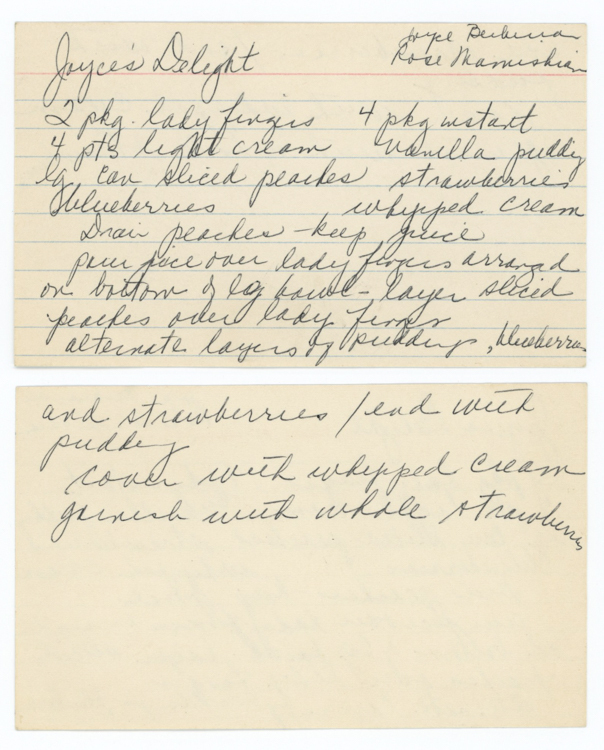 Joyce's Delight
Joyce
Rose Mamishian
2 pkg. lady fingers 4 pkg instant
4 pts light cream vanilla pudding
lg can sliced peaches strawberries
blueberries whipped cream
Drain peaches - keep juice
pour juice over lady fingers arranged
on bottom of lg bowl - layer sliced
peaches over lady finger
alternate layers of pudding, blueberries
and strawberries / end with
pudding
cover with whipped cream
garnish with whole strawberries